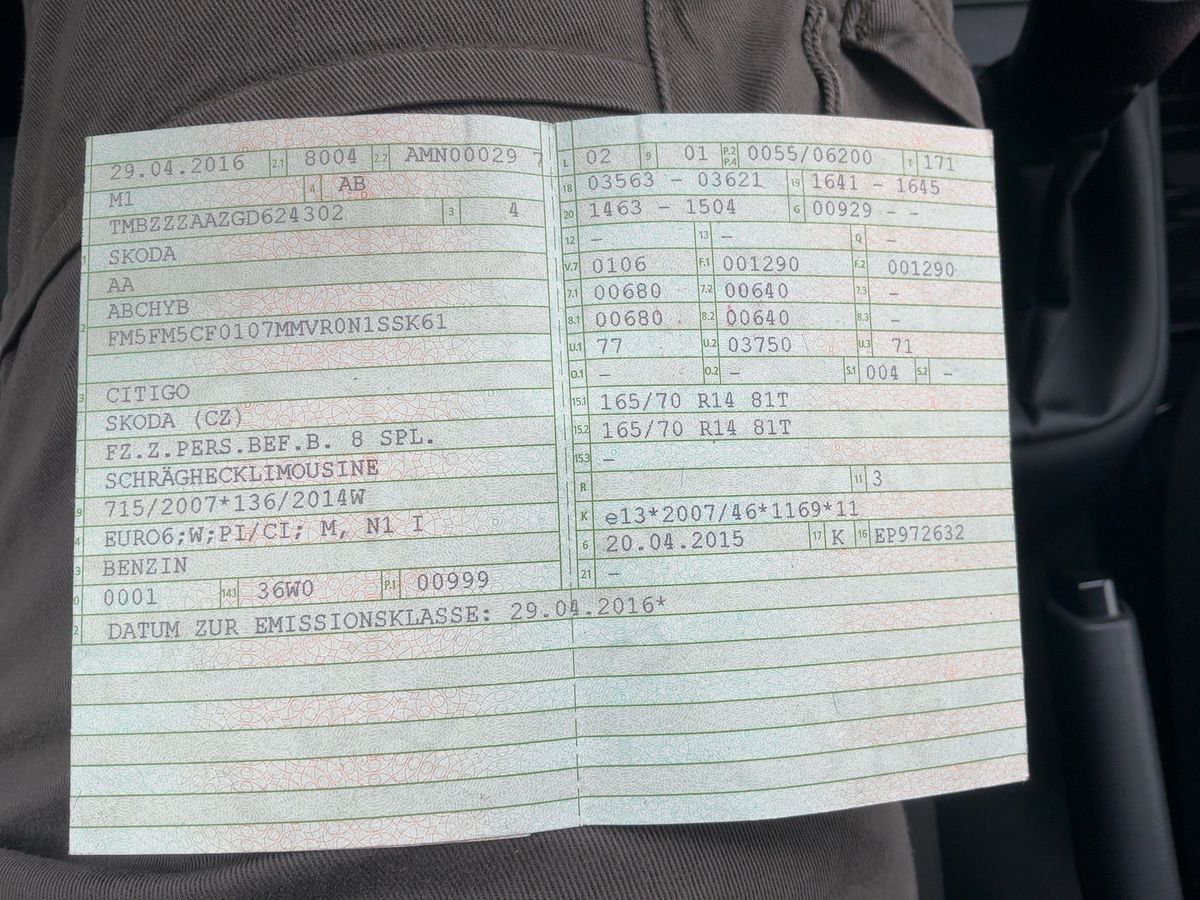 29.04.2016 2.1 8004 2.2 AMN00029 7
M1 4 AB
TMBZZZAAZGD624302 3 4
SKODA
AA
ABCHYB
FM5FM5CF0107MMVR0N1SSK61
CITIGO
SKODA (CZ)
FZ.Z.PERS.BEF.B. 8 SPL.
SCHRÄGHECKLIMOUSINE
715/2007*136/2014W
EURO6;W;PI/CI; M, N1 I
BENZIN
0001 14.1 36W0 P.1 00999
DATUM ZUR EMISSIONSKLASSE: 29.04.2016*
L 02 9 01 P.2 P.4 0055/06200 T 171
18 03563 - 03621 19 1641 - 1645
20 1463 - 1504 G 00929 - -
12 - 13 - Q -
V.7 0106 F.1 001290 F.2 001290
7.1 00680 7.2 00640 7.3 -
8.1 00680 8.2 00640 8.3 -
U.1 77 U.2 03750 U.3 71
O.1 - O.2 - S.1 004 S.2 -
15.1 165/70 R14 81T
15.2 165/70 R14 81T
15.3 -
R 11 3
K e13*2007/46*1169*11
6 20.04.2015 17 K 16 EP972632
21 -